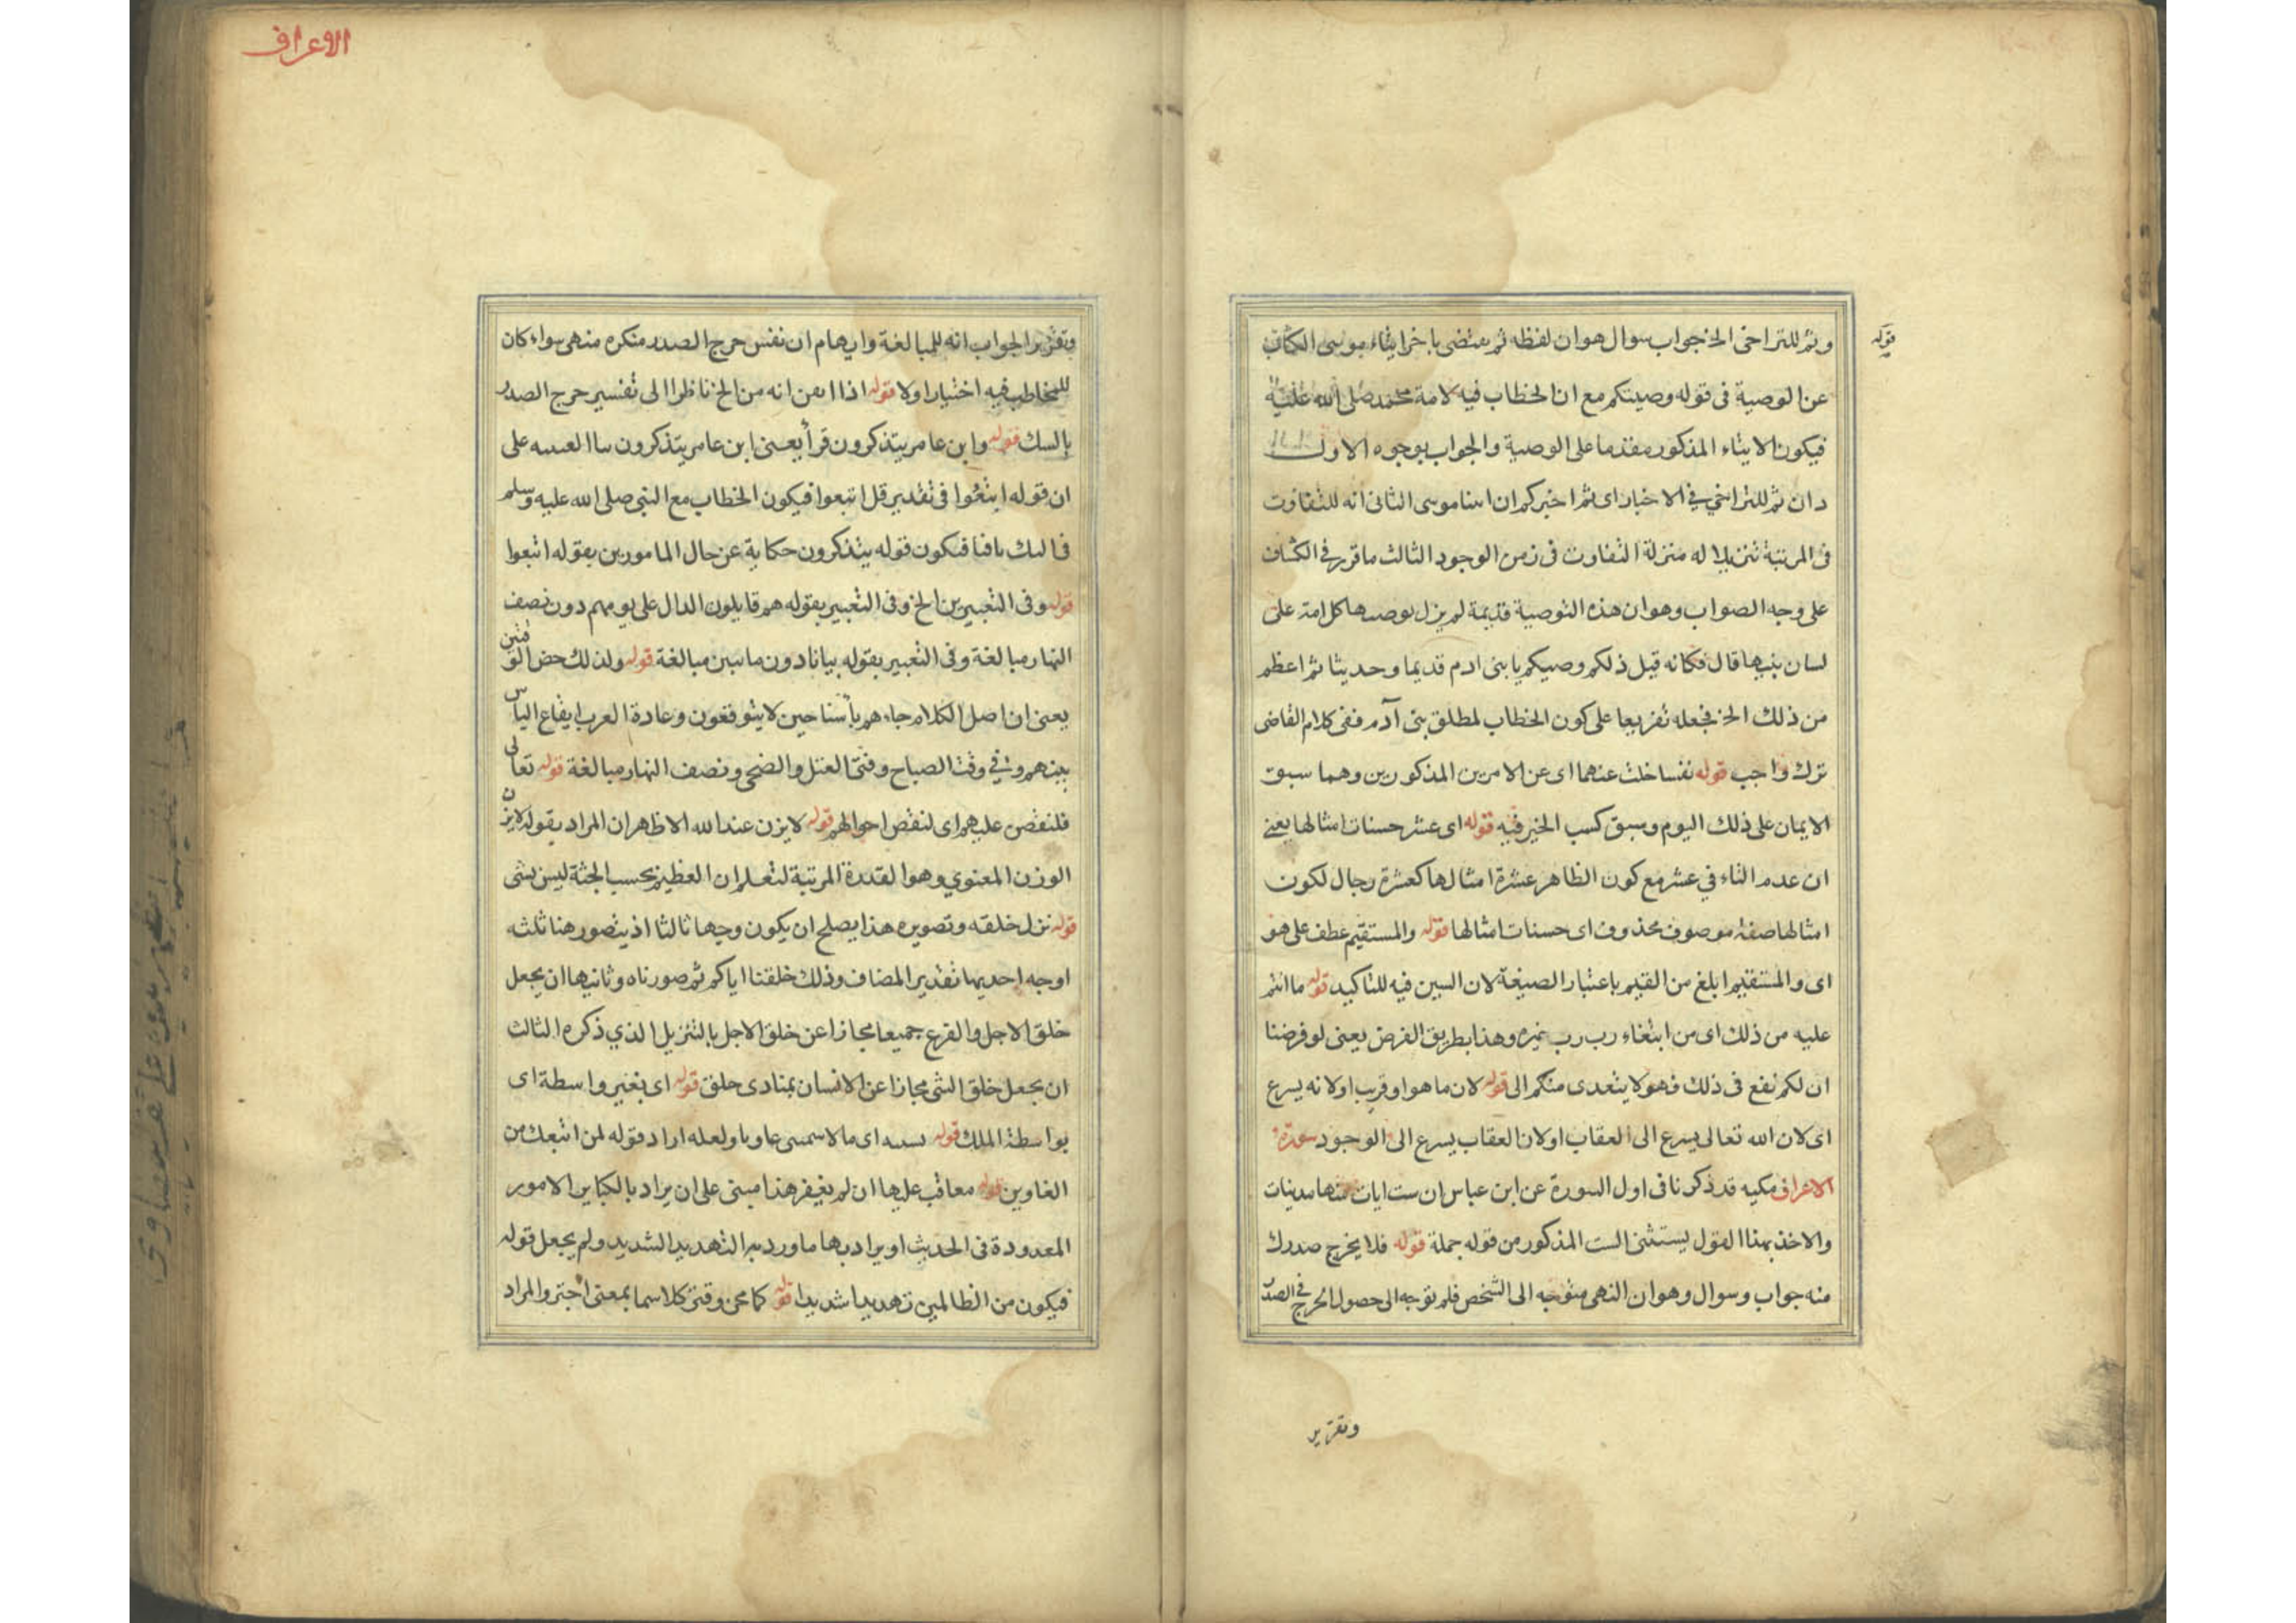 قوله
وثم للتراخى الخ جواب سوال هو ان لفظه ثم يقتضى تاخر ايتاء موسى الكتاب
عن الوصية فى قوله وصيتكم مع ان الخطاب فيه لامة محمد صلى الله عليه
فيكون الايتاء المذكور مقدما على الوصية والجواب بوجوه الاول
ان ثم للتراخي في الاخبار اى ثم اخبركم ان اتينا موسى الثانى انه للتفاوت
فى المرتبة تنزيلا له منزلة التفاوت فى زمن الوجود الثالث ما قرر في الكشاف
على وجه الصواب وهو ان هذه التوصية قديمة لم يزل توصيها كل امة على
لسان نبيها قال فكانه قيل ذلكم وصيكم يا بنى ادم قديما وحديثا ثم اعظم
من ذلك الخ فجعله تفريعا على كون الخطاب لمطلق بنى آدم ففى كلام القاضى
ترك واجب قوله نفسا خلت عنهما اى عن الامرين المذكورين وهما سبق
الايمان على ذلك اليوم وسبق كسب الخير فيه قوله اى عشر حسنات امثالها يعنى
ان عدم التاء في عشر مع كون الظاهر عشرة امثالها كعشرة رجال لكون
امثالها صفة موصوف محذوف اى حسنات امثالها قوله والمستقيم عطف على هو
اى والمستقيم ابلغ من القيم باعتبار الصيغة لان السين فيه للتاكيد قوله ما انتم
عليه من ذلك اى من ابتغاء رب غيره وهذا بطريق الفرض يعنى لو فرضنا
ان لكم نفع فى ذلك فهو لا يتعدى منكم الى قوله لان ما هو ات قريب او لانه يسرع
اى لان الله تعالى يسرع الى العقاب او لان العقاب يسرع الى الوجود سورة
الاعراف مكيه قد ذكرنا فى اول السورة عن ابن عباس ان ست ايات منها مدنيات
والاخذ بهذا القول يستثنى الست المذكور من قوله جملة قوله فلا يحرج صدرك
منه جواب وسوال وهو ان النهى متوجه الى الشخص فلم توجه الى حصول الحرج في الصدر
وتقرير
الاعراف
وتقرير الجواب انه للمبالغة وايهام ان نفس حرج الصدر منكره منهى سواء كان
للمخاطب فيه اختيار او لا قوله اذا ايقن انه من الخ ناظر الى تفسير حرج الصدر
بالشك قوله وابن عامر يتذكرون قرأ يعنى ابن عامر يتذكرون بياء الغيبه على
ان قوله اتبعوا فى تقدير قل اتبعوا فيكون الخطاب مع النبى صلى الله عليه وسلم
فيكون قوله يتذكرون حكاية عن حال المامورين بقوله اتبعوا
قوله وفى التعبيرين الخ وفى التعبير بقوله هم قايلون الدال على يومهم دون نصف
النهار مبالغة وفى التعبير بقوله بياتا دون ما بين مبالغة قوله ولذلك خص الوقتين
يعنى ان اصل الكلام جاءهم بأسنا حين لا يتوقعون وعادة العرب ايقاع الباس
بينهم وفي وقت الصباح والضحى ونصف النهار مبالغة قوله تعالى
فلنقصن عليهم اى لنقص احوالهم قوله لا يزن عند الله الاظهر ان المراد بقوله لا يزن
الوزن المعنوي وهو القدرة المرتبة لتعلم ان العظيم بحسب الجثة ليس بشى
قوله نزل خلقه وتصويره هذا يصلح ان يكون وجها ثالثا اذ يتصور هنا ثلثه
اوجه احديها تقدير المضاف وذلك خلقنا اباكم ثم صورناه وثانيها ان يجعل
خلق الاصل والفرع جميعا مجازا عن خلق الاصل بالتنزيل الذي ذكره الثالث
ان يجعل خلق الشى مجازا عن الانسان بمبادى خلق قوله اى بغير واسطة اى
بواسطة الملك قوله اى ما لاسمى غاويا ولعله اراد قوله لمن اتبعك من
الغاوين قوله معاقب عليها ان لم يغفر هذا مبنى على ان يراد بالكباير الامور
المعدودة فى الحديث او يراد بها ما ورد به التهديد الشديد ولم يجعل قوله
فيكون من الظالمين تهديدا شديدا قوله والمراد